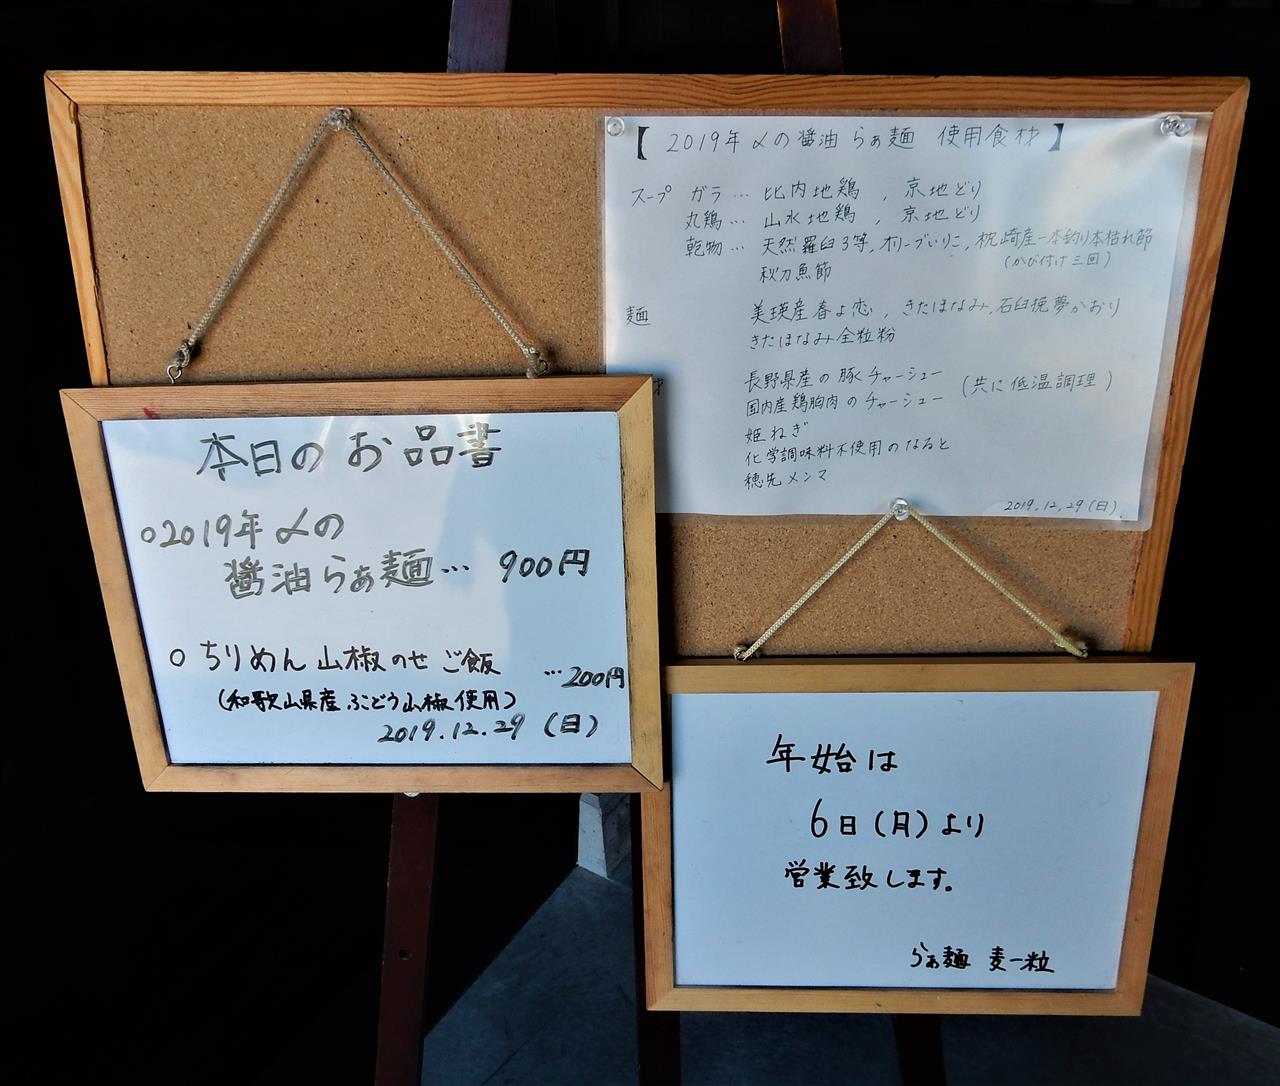 【2019年〆の醤油らぁ麺 使用食材】
スープ ガラ… 比内地鶏、京地どり
丸鶏… 山水地鶏、京地どり
乾物… 天然羅臼3等,オリーブいりこ,枕崎産一本釣り本枯れ節
(かび付け三回)
秋刀魚節
麺 美瑛産春よ恋、きたほなみ,石臼挽夢かおり
きたほなみ全粒粉
材 長野県産の豚チャーシュー (共に低温調理)
国内産鶏胸肉のチャーシュー
姫ねぎ
化学調味料不使用のなると
穂先メンマ
2019.12.29(日).
本日のお品書
○2019年〆の
醤油らぁ麺… 900円
○ちりめん山椒のせご飯 …200円
(和歌山県産ぶどう山椒使用)
2019.12.29(日)
年始は
6日(月)より
営業致します。
らぁ麺 麦一粒